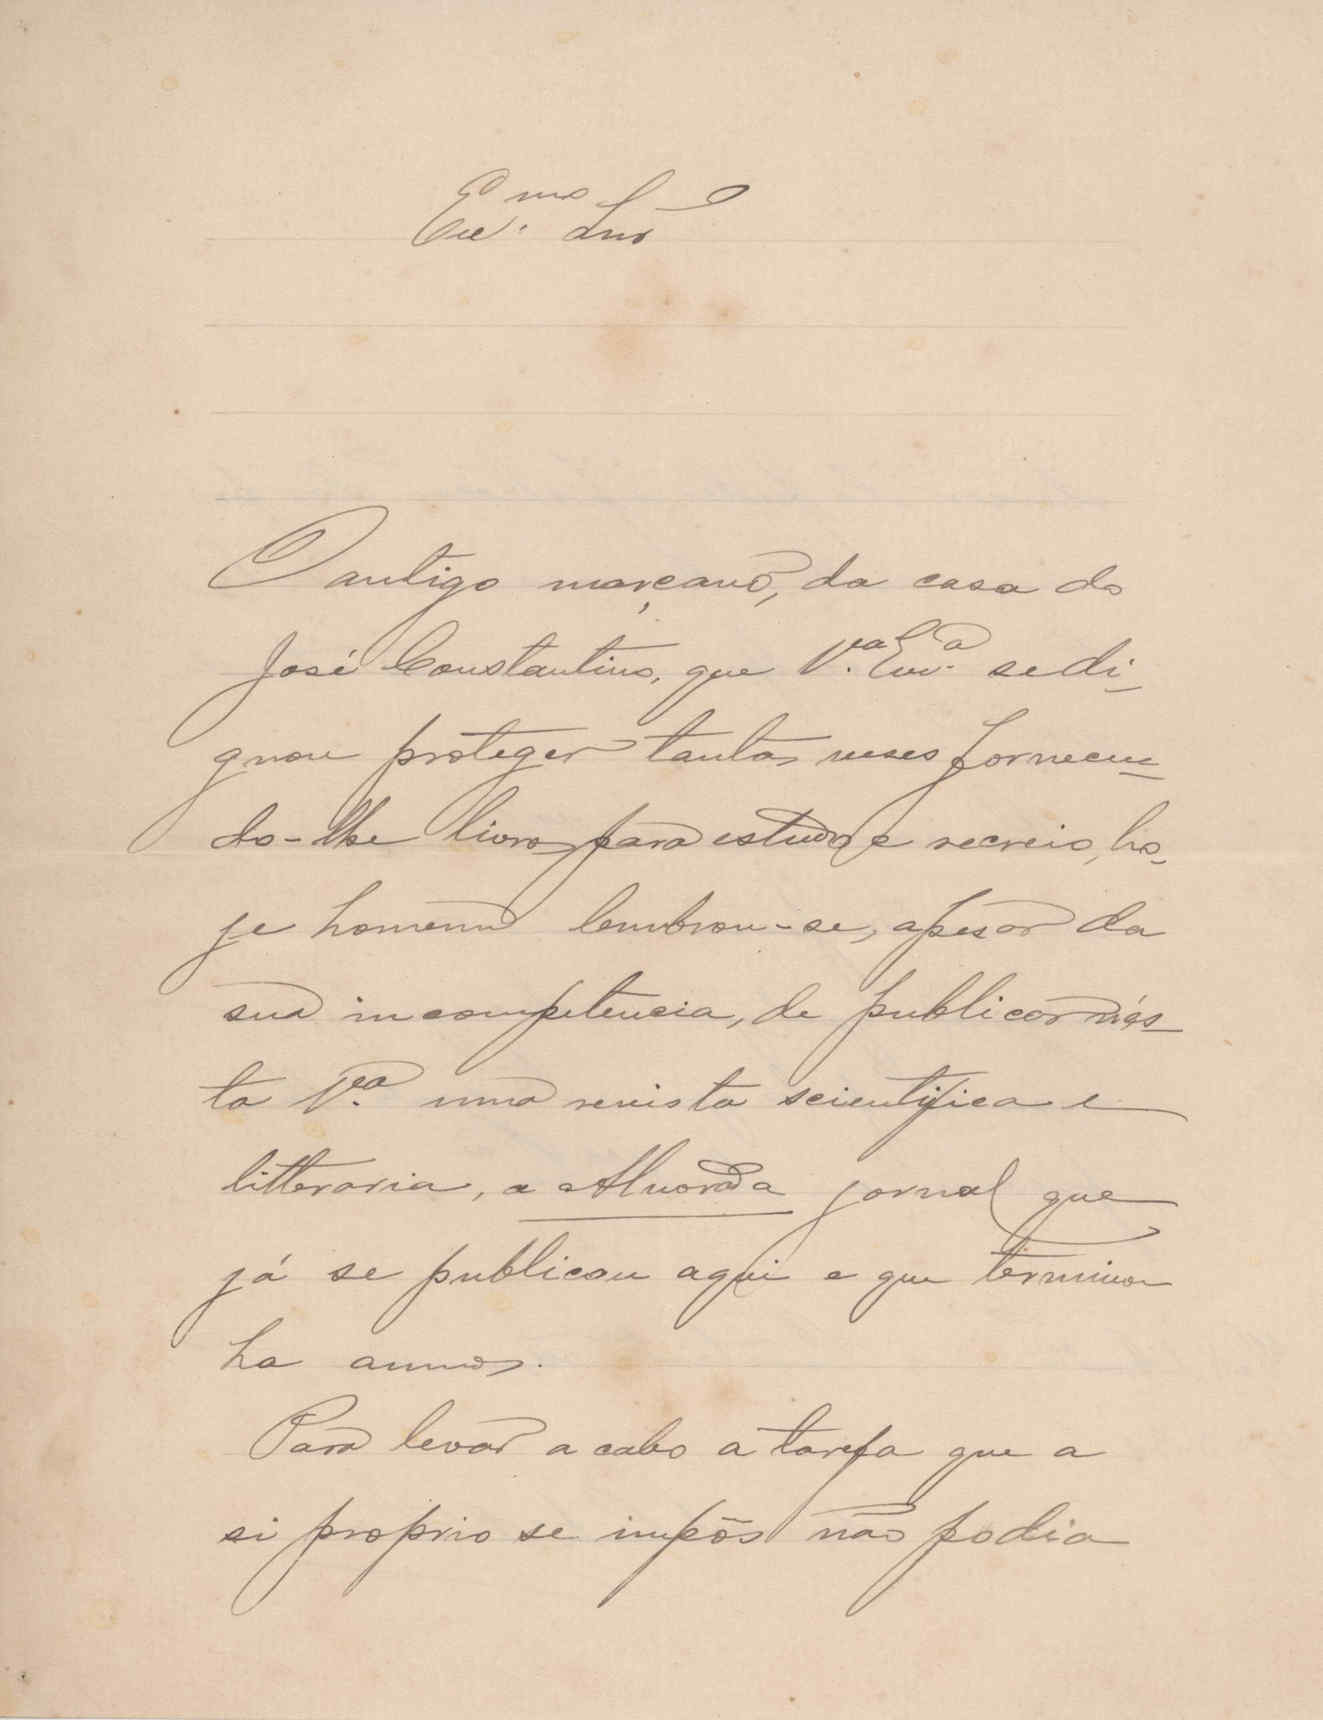 Exc.mo Snr
O antigo marçano, da casa do
José Constantino, que V.ea Exc.a se di-
gnou proteger tantas veses fornecen-
do-lhe livros para estudo e recreio, ho-
je homem lembrou-se, apesar da
sua incompetencia, de publicar nés-
ta V.ea uma revista scientifica e
litteraria, a Alvorada jornal que
já se publicou aqui e que terminou
ha annos.
Para levar a cabo a tarefa que a
si proprio se impôs não podia